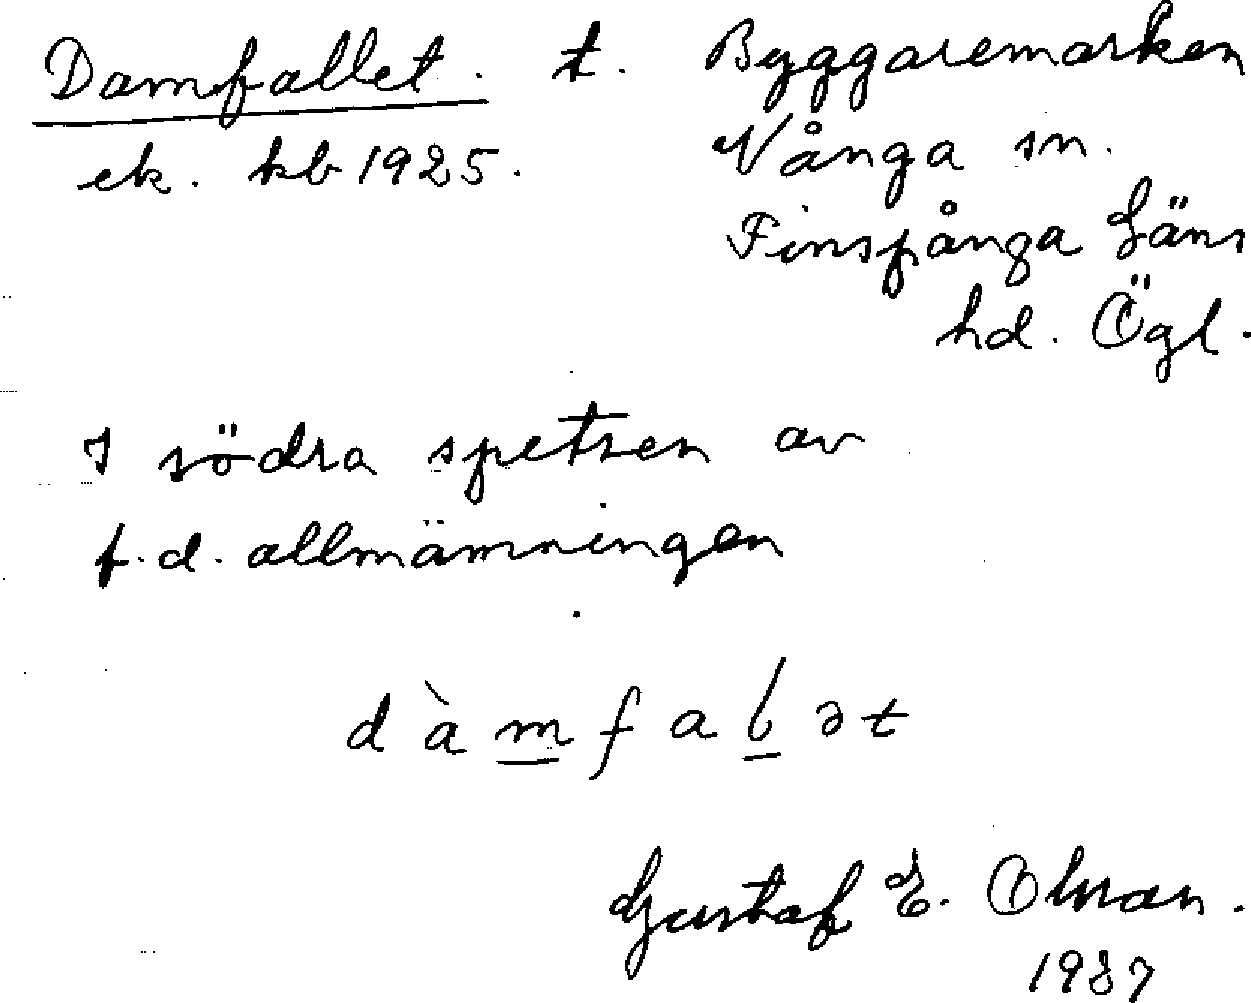 Damfallet. t. Byggaremarken
ek. kb 1925. Vånga sn.
Finspånga Läns
hd. Ögl.
I södra spetsen av
f.d. allmämningen
dàmfalət
Gustaf E. Olson.
1937